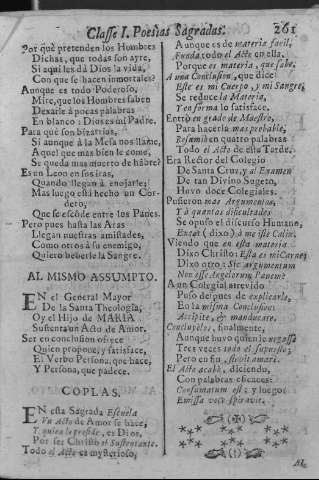 Classe I. Poesias Sagradas. 261
Por què pretenden los Hombres
Dichas, que todas son ayre,
Si aqui les dà Dios la vida,
Con que se hacen inmortales?
Aunque es todo Poderoso,
Mire, que los Hombres saben
Dexarle à pocas palabras
En blanco: Dios es su Padre.
Para què son bizarrias,
Si aunque à la Mesa nos llame,
Aquel que mas bien le come,
Se queda mas muerto de hàbre?
Es un Leon en sus iras,
Quando llegan à enojarle;
Mas luego està hecho un Cordero,
Que se esconde entre los Panes.
Pero pues hasta las Aras
Llegan nuestras amistades,
Como otros à su enemigo,
Quiero beberle la Sangre.
AL MISMO ASSUMPTO.
EN el General Mayor
De la Santa Theología,
Oy el Hijo de MARIA
Sustenta un Acto de Amor.
Ser en conclusion ofrece
Quien propone, y satisface,
El Verbo Persona, que hace,
Y Persona, que padece.
COPLAS.
EN esta Sagrada Escuela
Un Acto de Amor se hace,
Y quien le preside, es Dios,
Por ser Christo el Sustentante.
Todo el Acto es mysterioso,
Aunque es de materia facil,
Funda todo el Acto en ella.
Porque es materia, que sabe.
A una Conclusion, que dice:
Este es mi Cuerpo, y mi Sangre,
Se reduce la Materia,
Y en forma lo satisface.
Entrò en grado de Maestro,
Para hacerla mas probable,
Resumiò en quatro palabras
Todo el Acto de esta Tarde.
Era Rector del Colegio
De Santa Cruz, y al Examen
De tan Divino Sugeto,
Huvo doce Colegiales.
Pusieron mas Argumentos,
Y à quantas dificultades
Se opuso el discurso Humano,
Entrat (dixo) à me iste Calix.
Viendo que en esta materia
Dixo Christo: Esta es mi Carne;
Dixo otro: Sic argumentum
Non esse Angelorum Panem?
A un Colegial atrevido
Puso despues de explicarle,
Por la misma Conclusion:
Accipite, & manducate.
Concluyòlos, finalmente,
Aunque huvo quien le negasse
Tres veces todo el supuesto;
Pero en fin, llorò amante.
El Acto acabò, diciendo,
Con palabras eficaces:
Consumatum est: y luego:
Emissa voce spiravit.
AL